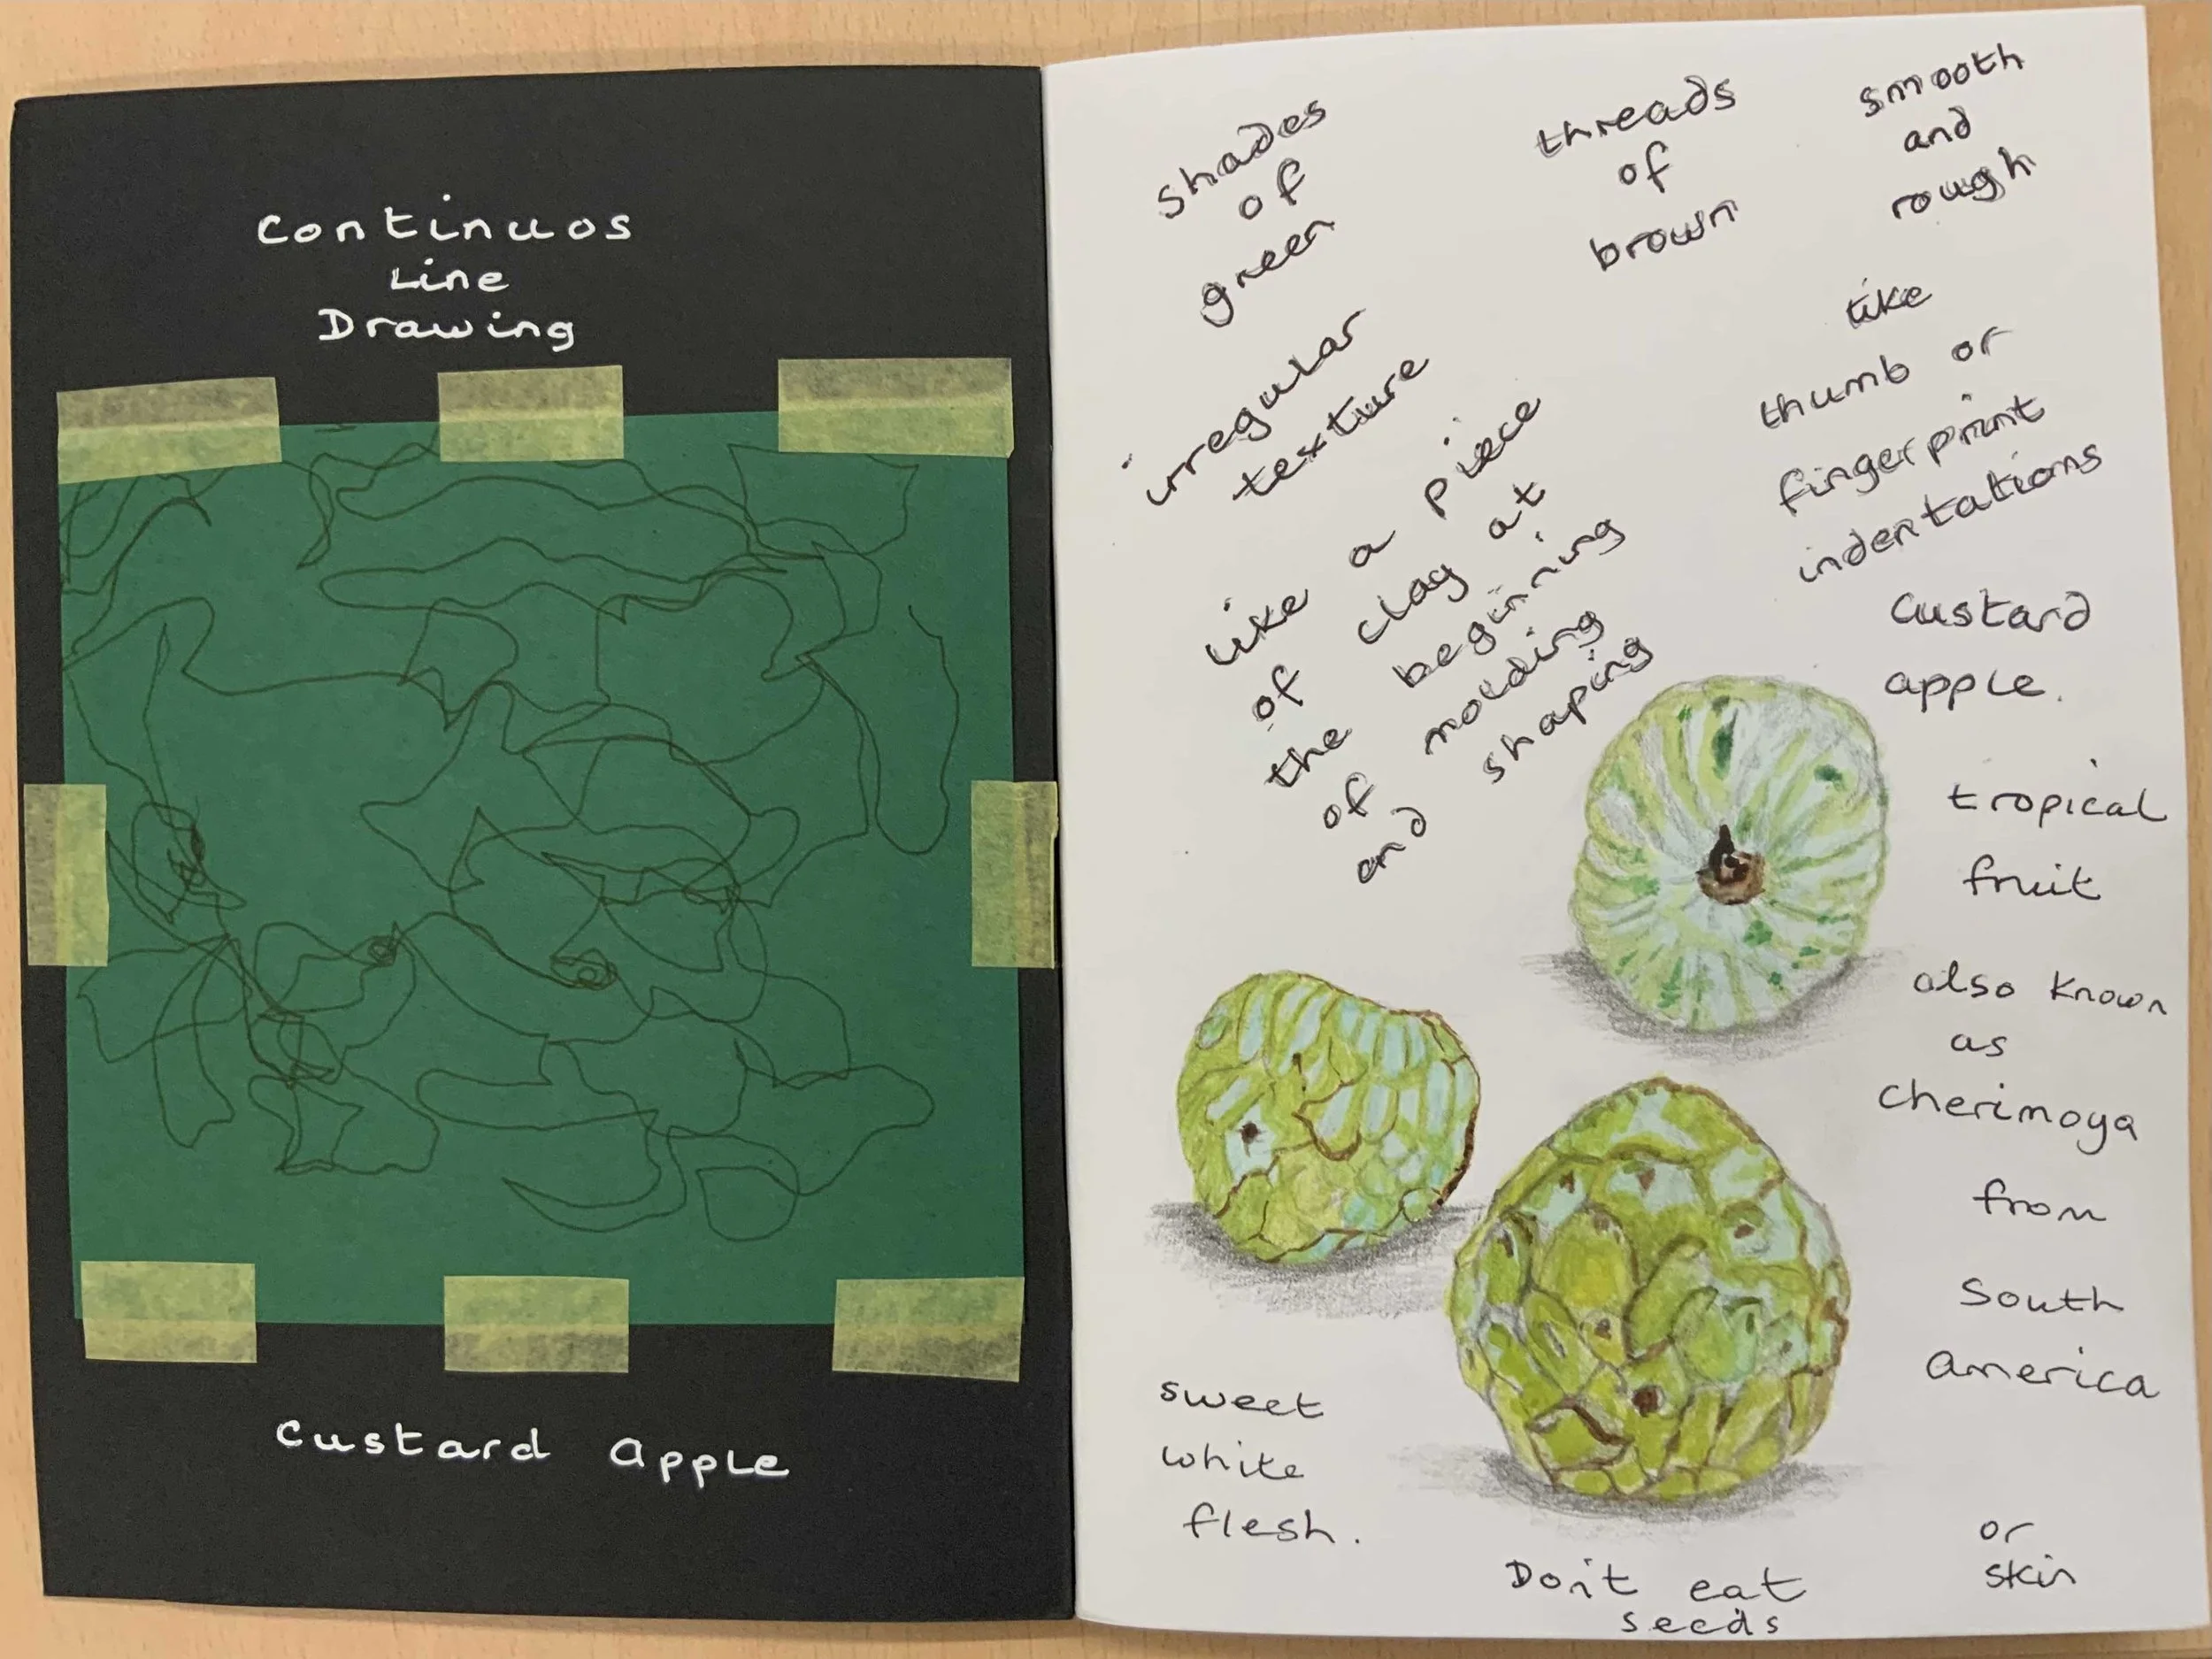 Continuos
Line
Drawing
Custard Apple
shades
of
green
threads
of
brown
smooth
and
rough
irregular
texture
like
thumb or
fingerprint
indentations
like a piece
of clay at
the beginning
of molding
and shaping
Custard
apple.
tropical
fruit
also known
as
Cherimoya
from
South
America
sweet
white
flesh.
Don't eat
seeds
or
skin